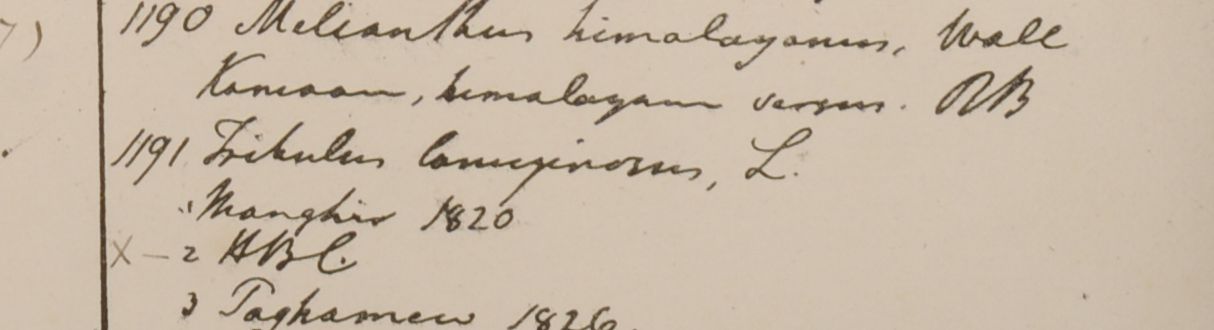 7)
1190 Melianthus himalayanus, Wall
Kamaon, himalayam versus. RB
1191 Tribulus lanuginosus, L.
1 Monghir 1820
X - 2 HBC.
3 1826.